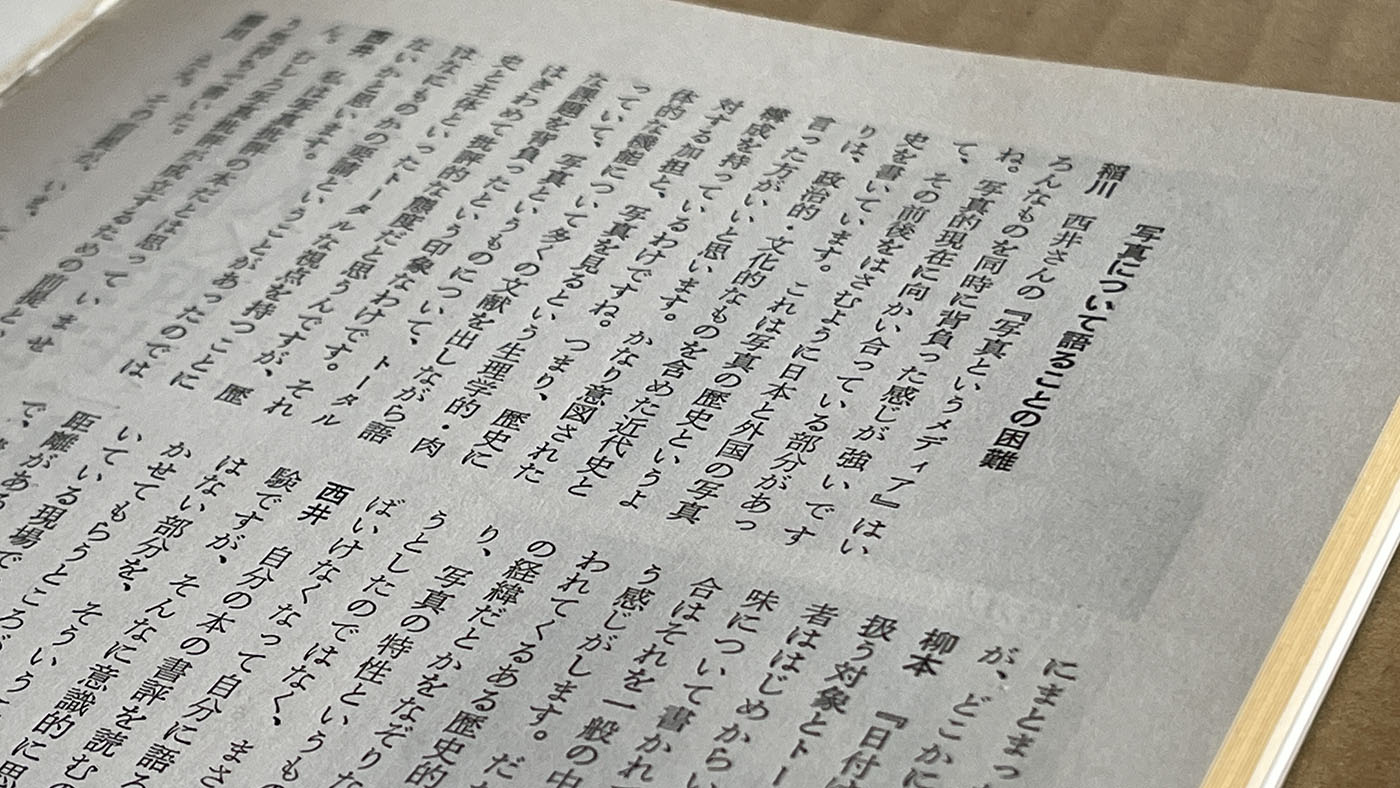 写真について語ることの困難
稲川　西井さんの『写真というメディア』はい
ろんなものを同時に背負った感じが強いです
ね。写真的現在に向かい合っている部分があっ
て、その前後をはさむように日本と外国の写真
史を書いています。これは写真の歴史というよ
りは、政治的・文化的なものを含めた近代史と
言った方がいいと思います。かなり意図された
構成を持っているわけですね。つまり、歴史に
対する加担と、写真を見るという生理学的・肉
体的な機能について多くの文献を出しながら語
っていて、写真というものについて、トータル
な課題を背負ったという印象なわけです。それ
はきわめて批評的な態度だと思うんですが、歴
史と主体といったトータルな視点を持つことに
はなにものかの要請ということがあったのでは
ないかと思います。
西井　私は写真批評の本だとは思っていませ
ん。むしろ写真批評が成立するための前提と
う気持ちで書いた。
にまとまっ
が、どこかに
柳本　『日付は
扱う対象とトー
者ははじめからい
味について書かれ
合はそれを一般の中
う感じがします。だか
われてくるある歴史的
の経緯だとかをなぞりた
り、写真の特性というも
うとしたのではなく、まさ
ぼいけなくなって自分に語ろ
西井　自分の本の書評を読むの
験ですが、そんなに意識的に思
はない部分を、そういう
かせてもらうところが
いている現場で
距離がある
で、